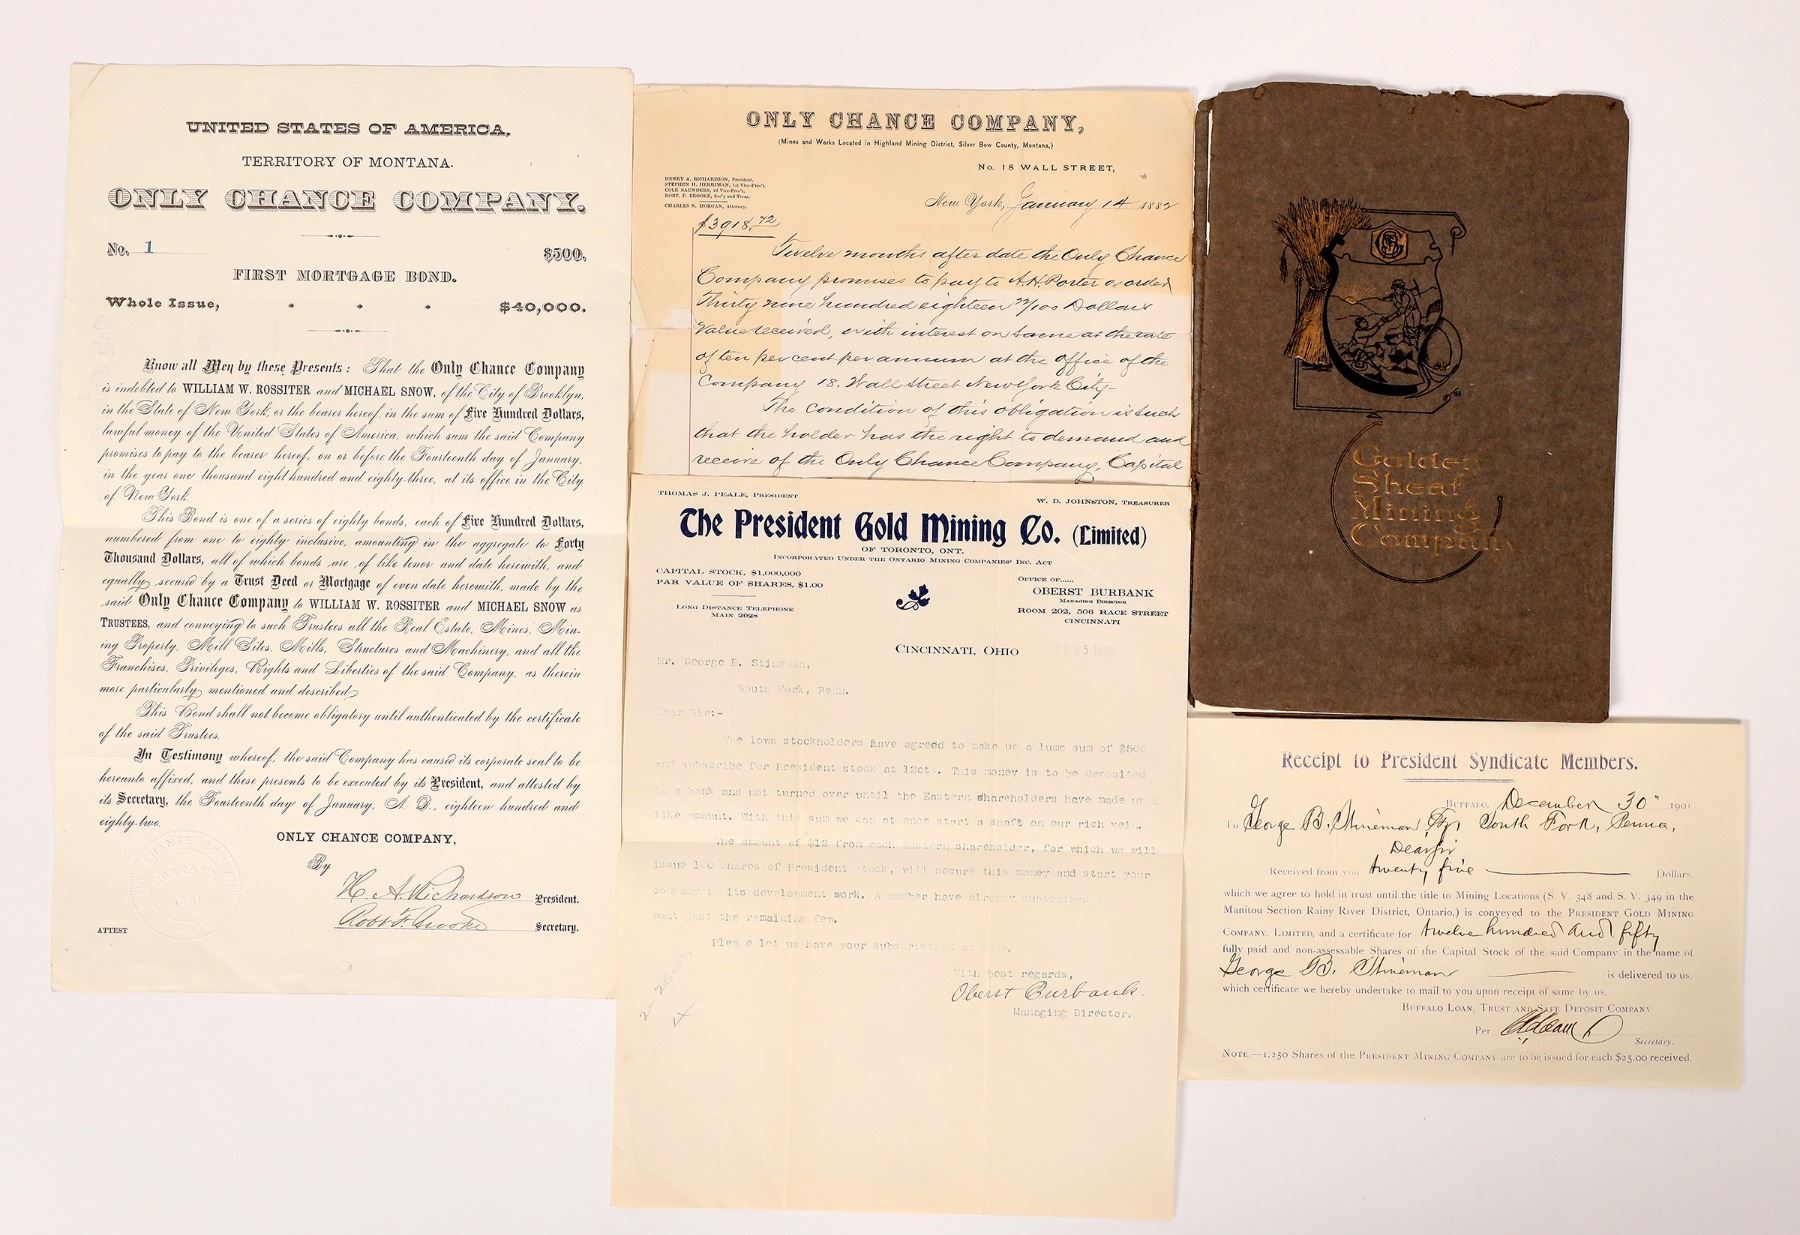 UNITED STATES OF AMERICA,
TERRITORY OF MONTANA.
ONLY CHANCE COMPANY.
No. 1 $500.
FIRST MORTGAGE BOND.
Whole Issue, $40,000.
Know all Men by these Presents: That the Only Chance Company
is indebted to WILLIAM W. ROSSITER and MICHAEL SNOW, of the City of Brooklyn,
in the State of New York, or the bearer hereof, in the sum of Five Hundred Dollars,
lawful money of the United States of America, which sum the said Company
promises to pay to the bearer hereof, on or before the Fourteenth day of January,
in the year one thousand eight hundred and eighty-three, at its office in the City
of New York.
This Bond is one of a series of eighty bonds, each of Five Hundred Dollars,
numbered from one to eighty inclusive, amounting in the aggregate to Forty
Thousand Dollars, all of which bonds are of like tenor and date herewith, and
equally secured by a Trust Deed or Mortgage of even date herewith, made by the
said Only Chance Company to WILLIAM W. ROSSITER and MICHAEL SNOW as
TRUSTEES, and conveying to such Trustees all the Real Estate, Mines, Min-
ing Property, Mill Sites, Mills, Structures and Machinery, and all the
Franchises, Privileges, Rights and Liberties of the said Company, as therein
more particularly mentioned and described.
This Bond shall not become obligatory until authenticated by the certificate
of the said Trustees.
In Testimony whereof, the said Company has caused its corporate seal to be
hereunto affixed, and these presents to be executed by its President, and attested by
its Secretary, the Fourteenth day of January, A. D., eighteen hundred and
eighty-two.
ONLY CHANCE COMPANY,
By
H. A. Richardson President.
Robt F. Brooke Secretary.
ATTEST
ONLY CHANCE COMPANY,
(Mines and Works Located in Highland Mining District, Silver Bow County, Montana,)
No. 18 WALL STREET,
HENRY A. RICHARDSON, President,
STEPHEN H. HERRIMAN, 1st Vice-Pres't,
COLE SAUNDERS, 2d Vice-Pres't,
ROBT. F. BROOKE, Sec'y and Treas.
CHARLES N. MORGAN, Attorney.
New York, January 14 1882
$3918.72
Twelve months after date the Only Chance
Company promises to pay to A.H. Porter or order
Thirty nine hundred eighteen 72/100 Dollars
Value received, with interest on same at the rate
of ten per cent per annum at the office of the
Company 18, Wall Street New York City-
The condition of this obligation is such
that the holder has the right to demand and
receive of the Only Chance Company, Capital
THOMAS J. PEALE, PRESIDENT W. D. JOHNSTON, TREASURER
The President Gold Mining Co. (Limited)
OF TORONTO, ONT.
INCORPORATED UNDER THE ONTARIO MINING COMPANIES' INC. ACT
CAPITAL STOCK, $1,000,000
PAR VALUE OF SHARES, $1.00
LONG DISTANCE TELEPHONE
MAIN 2028
OFFICE OF.....
OBERST BURBANK
MANAGING DIRECTOR
ROOM 202, 506 RACE STREET
CINCINNATI
CINCINNATI, OHIO
Mr. George B. Stineman,
South Fork, Penn.
Dear Sir:-
The Iowa stockholders have agreed to make up a lump sum of $500
and subscribe for President stock at 12cts. This money is to be deposited
in a bank and not turned over until the Eastern shareholders have made up a
like amount. With this sum we can at once start a shaft on our rich vein.
The amount of $12 from each Eastern shareholder, for which we will
issue 100 shares of President stock, will secure this money and start your
company in its development work. A number have already subscribed
want just the remaining few.
Please let us have your subscription at
With best regards,
Oberst Burbank.
Managing Director.
Golden
Sheaf
Mining
Company
Receipt to President Syndicate Members.
BUFFALO, December 30" 1901
To George B. Stineman South Fork, Penna,
Dear Sir
Received from you twenty five Dollars,
which we agree to hold in trust until the title to Mining Locations (S. V. 348 and S. V. 349 in the
Manitou Section Rainy River District, Ontario,) is conveyed to the PRESIDENT GOLD MINING
COMPANY, LIMITED, and a certificate for twelve hundred and fifty
fully paid and non-assessable Shares of the Capital Stock of the said Company in the name of
George B. Stineman is delivered to us,
which certificate we hereby undertake to mail to you upon receipt of same by us.
BUFFALO LOAN, TRUST AND SAFE DEPOSIT COMPANY
Per
Secretary.
NOTE.—1,250 Shares of the PRESIDENT MINING COMPANY are to be issued for each $25.00 received.